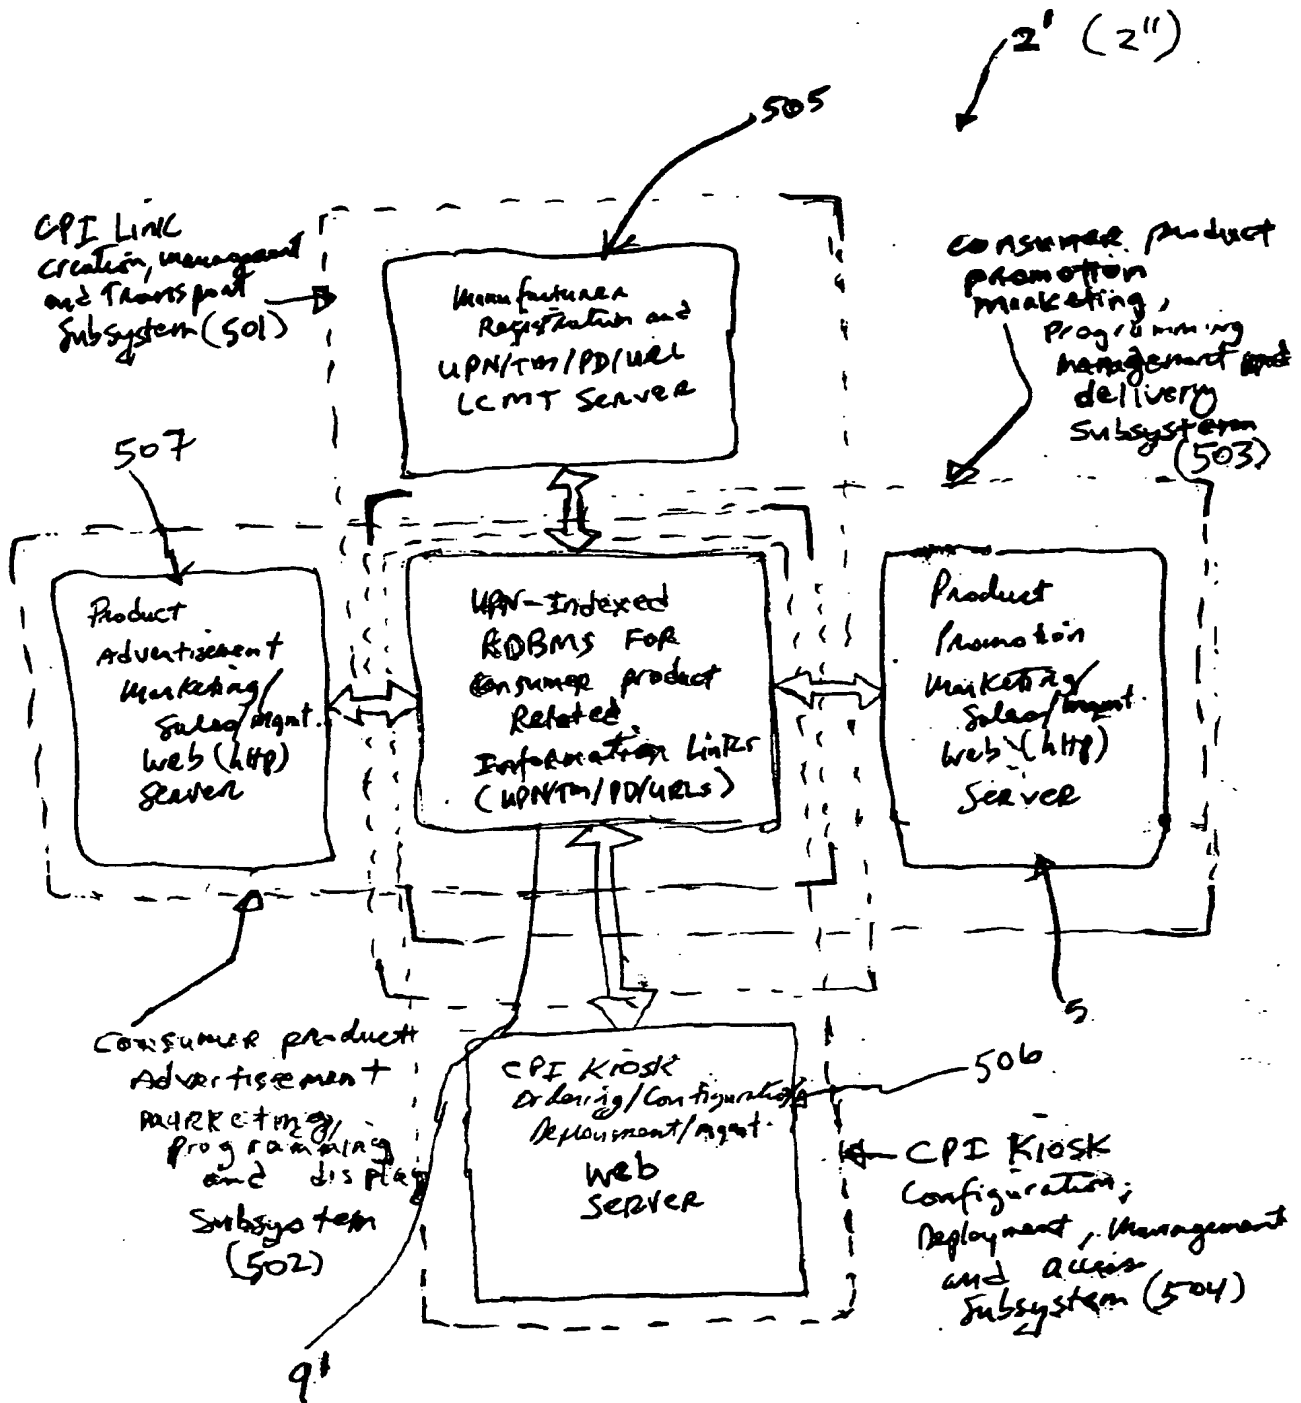 2' (2")
505
CPI Link
Creation, management
and Transport
Subsystem (501)
Manufacturer
Registration and
UPN/TM/PD/URL
LCMT SERVER
Consumer product
promotion
marketing,
Programming
management and
delivery
Subsystem
(503)
507
Product
Advertisement
Marketing/
Sales/mgmt.
Web (http)
Server
UPN-Indexed
RDBMS FOR
Consumer product
Related
Information Links
(UPN/TM/PD/URLs)
Product
Promotion
Marketing/
Sales/mgmt.
Web (http)
Server
5
Consumer product
Advertisement
marketing,
programming
and display
Subsystem
(502)
CPI Kiosk
Ordering/Configuration/
Deployment/mgmt.
Web
SERVER
506
CPI Kiosk
Configuration,
Deployment, Management
and access
Subsystem (504)
9'